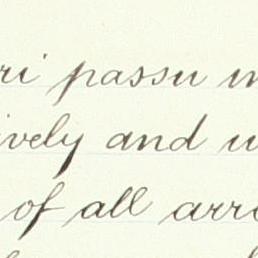 ri passu
ively and
of all arre